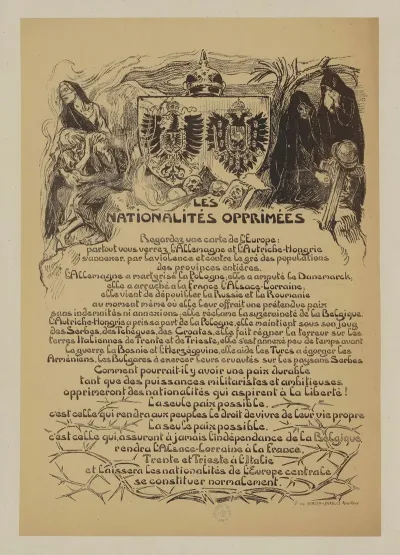 LES
NATIONALITÉS OPPRIMÉES
Regardez une carte de l'Europe :
partout vous verrez l'Allemagne et l'Autriche-Hongrie
s'avancer, par la violence et contre le gré des populations
des provinces entières.
L'Allemagne a martyrisé la Pologne, elle a amputé le Danemark,
elle a arraché à la France l'Alsace-Lorraine ;
elle vient de dépouiller la Russie et la Roumanie
au moment même où elle leur offrait une prétendue paix
sans indemnités ni annexions ; elle réclame la suzeraineté de la Belgique.
L'Autriche-Hongrie a pris sa part de la Pologne, elle maintient sous son joug
des Serbes, des Tchèques, des Croates, elle fait régner la terreur sur les
terres Italiennes de Trente et de Trieste, elle s'est annexé peu de temps avant
la guerre, la Bosnie et l'Herzégovine, elle aide les Turcs à égorger les
Arméniens, les Bulgares à exercer leurs cruautés sur les paysans Serbes
Comment pourrait-il y avoir une paix durable
tant que des puissances militaristes et ambitieuses
opprimeront des nationalités qui aspirent à la Liberté !
La seule paix possible,
c'est celle qui rendra aux peuples le droit de vivre de leur vie propre
La seule paix possible,
c'est celle qui, assurant à jamais l'indépendance de la Belgique,
rendra l'Alsace-Lorraine à la France,
Trente et Trieste à l'Italie
et laissera les nationalités de l'Europe centrale
se constituer normalement.